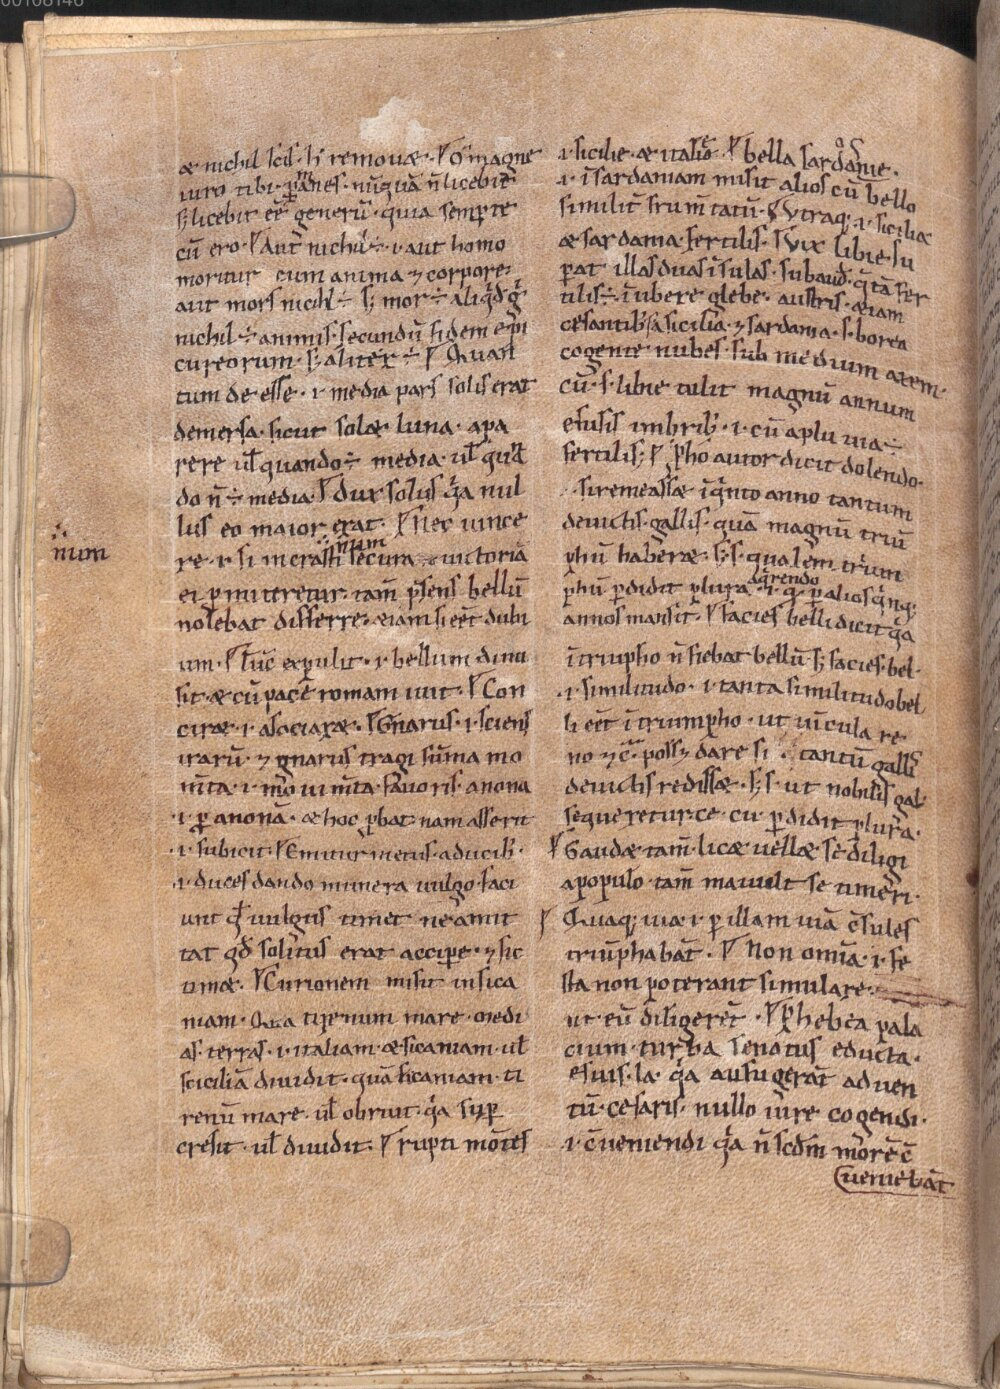 00108146
æ nichil scił. ſ; remouæ. O magne
iuro tibi. manes. nūquā n̄ licebit
ſ; licebit eē generū. quia semp te
cū ero. Aut nichil ÷. i. aut homo
moritur cum anima ⁊ corpore.
aut mors nichil ÷ ſ; mors ÷ aliqd
nichil ÷ animis. secundū fidem epi
cureorum. ſ; aliter ÷. Quan
tum de esse. i. media pars solis erat
demersa. sicut solæ luna. apa
rere uł quando ÷ media. uł
do n̄ ÷ media. dux solus qa nul
lus eo maior erat. Nec uince
num
re. i. si in crastinum secura victoria
ei pmiteretur. tam̄ psens bellū
nolebat differre. æiam si eēt dubi
um. Tūc expulit. i. bellum dimi
sit æ cū pacē romam iuit. Con
ciræ. i. asociaræ. Gnarus. i. sciens
irarū. ⁊ gnarus tragi sūma mo
mīta. i. uimīta. fauoris. anona
.i. p anonā. æ hoc pbat. nam asserit
.i. subicit. Emitur metus. a ducib;.
.i. duces dando munera uulgo. faci
unt qd uulgus timet ne amit
tat qd solitus erat accipe. ⁊ sic
timæ. Curionem misit in sica
niam. Qua tirenum mare. medi
as terras. i. italiam æ sicaniam. uł
siciliā diuidit. quā sicaniam. ti
renū mare. uł obruit. qa sup
cresit. uł diuidit. rupti mōtes
.i. sicilie. æ italie. bella sardanie.
.i. ī sardaniam misit alios cū bello
similit. Vtraq;. i. sicilia
æ sardania. fertilis. Vix libie su
pat illas duas īsulas. subaud. qtā fer
tilis ÷ ī ubere glebe. austris. æiam
cesantib; sicilia. ⁊ sardania. s. borea
cogente nubes. sub medium axem.
cū. s. libie tulit magnū annum
efusis imbrib;. i. cū a pluuia ÷
fertilis. pho autor dicit dolendo.
si remeassæ ī qnto anno tantum
deuictis gallis. quā magnū triū
phū haberæ. ſ; s. qualem trium
phū pdidit plura qrendo. i. q p alios qnq;
annos mansit. facies belli dicit qa
ī triupho n̄ fiebat bellū ſ; facies bel.
.i. similitudo. i. tanta similitudo bel
li eēt ī triumpho. ut uīcula re
no ⁊ c. poss; dare si tantū gallis
deuictis redissæ. ſ; s. ut nobilis gal
seque pdidit plura.
Gaudæ tam̄. licæ uellæ se diligi
a populo. tam̄ mauult se timeri.
Quaq; uia. i. p illam uiā c̄sules
triūphabāt. Non omīa. i. fe
sta non poterant simulare.
ut eū diligerēt. Phebea pala
cium. turba senatus educta.
esuis. la. qa aufugerāt aduen
tū. cesaris. nullo iure cogendi.
.i. c̄ueniendi qa n̄ scdm morē c̄
ueniebāt